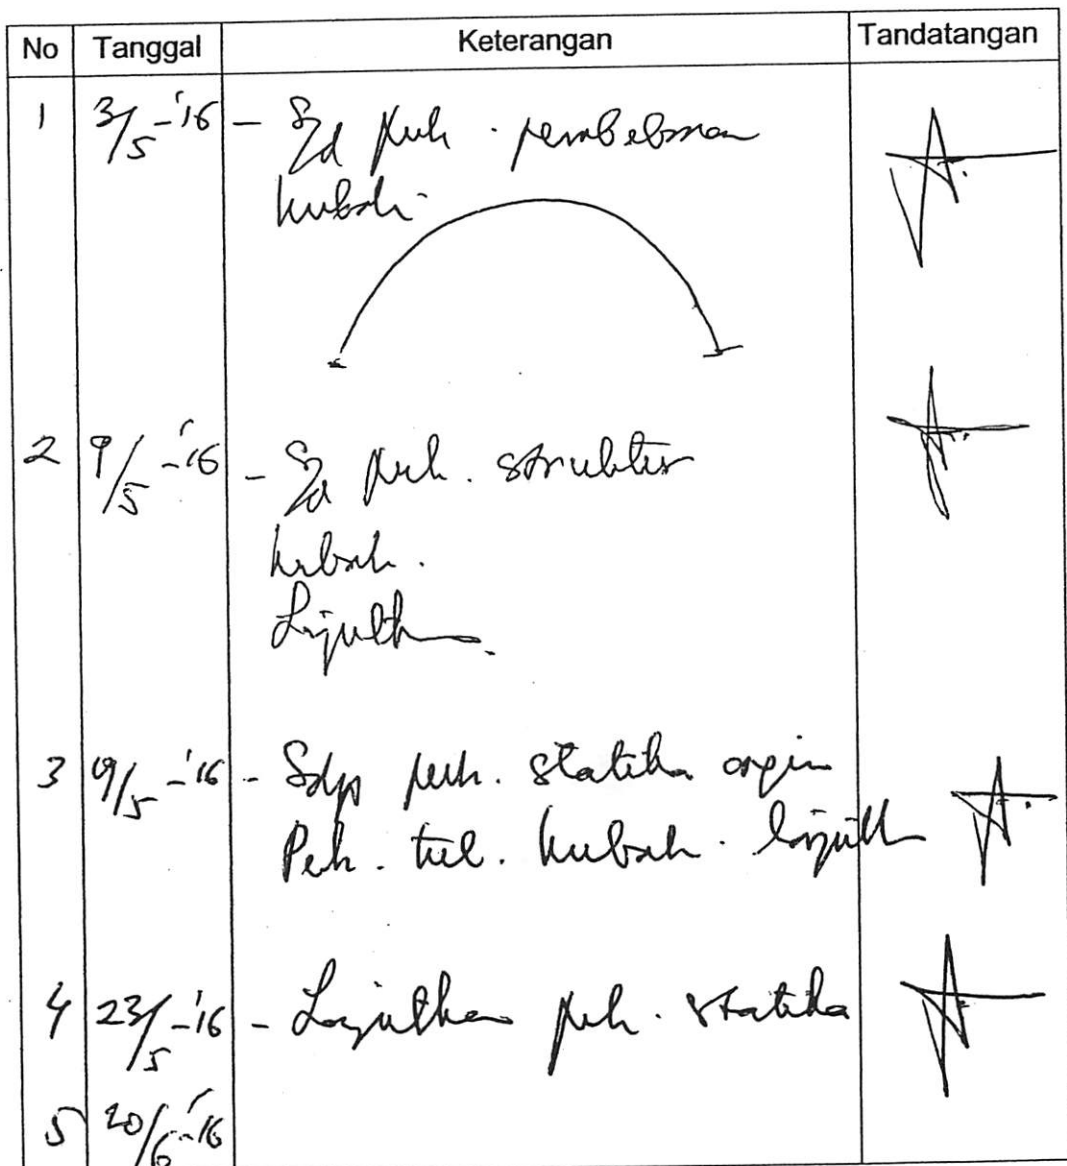 No Tanggal Keterangan Tandatangan
1 3/5-'16 - S/d perh. pembebanan
kubah.
2 9/5-'16 - S/d perh. struktur
kubah.
Lanjutkan.
3 19/5-'16 - perh. statika
Perh. tul. kubah. lanjutkan
4 23/5-'16 - Lanjutkan perh. statika
5 20/6-'16